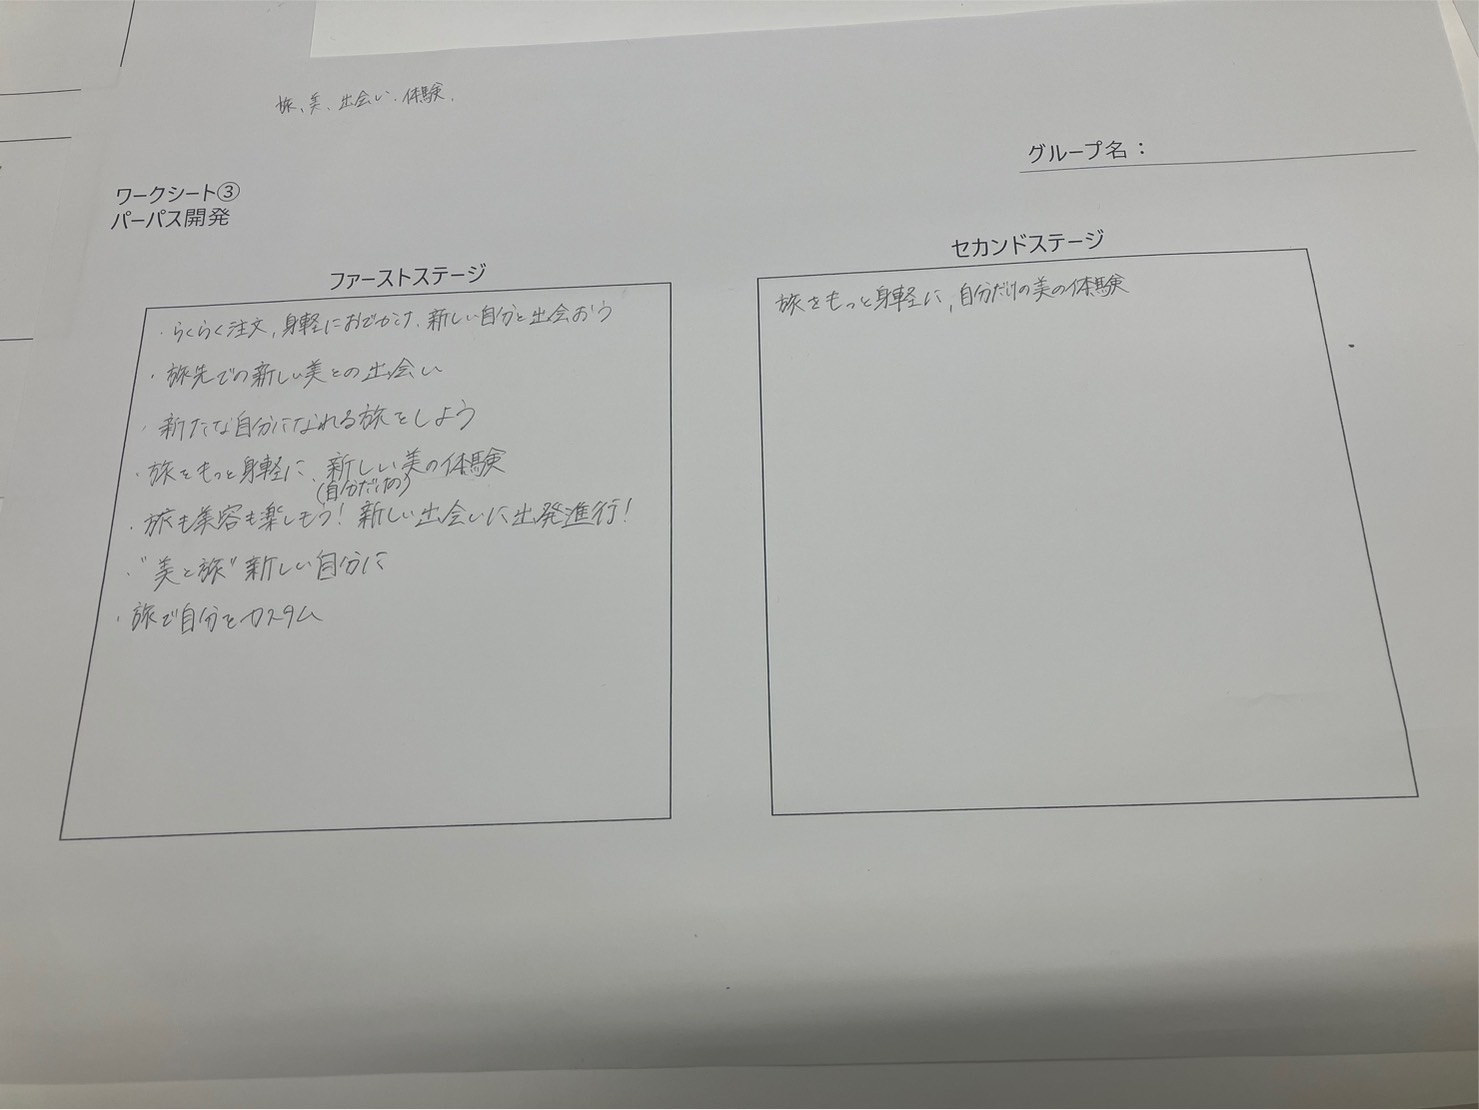 旅、美、出会い、体験、
グループ名：
ワークシート③
パーパス開発
ファーストステージ
・らくらく注文、身軽におでかけ、新しい自分と出会おう
・旅先での新しい美との出会い
・新たな自分になれる旅をしよう
・旅をもっと身軽に、新しい美の体験
(自分だけの)
・旅も美容も楽しもう！新しい出会いに出発進行！
・"美と旅"新しい自分に
・旅で自分をカスタム
セカンドステージ
旅をもっと身軽に、自分だけの美の体験